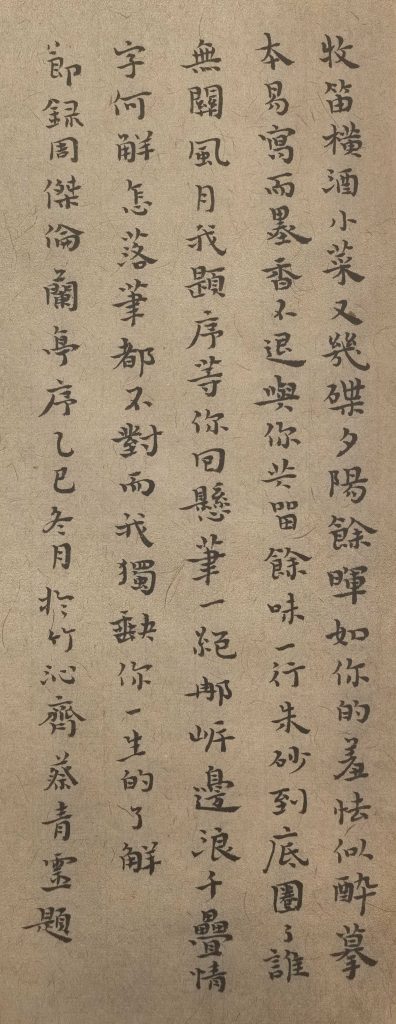 牧笛橫酒小菜又幾碟夕陽餘暉如你的羞怯似醉摹
本易寫而墨香不退與你共留餘味一行朱砂到底圈了誰
無關風月我題序等你回懸筆一絕那岸邊浪千疊情
字何解怎落筆都不對而我獨缺你一生的了解
節録周傑倫蘭亭序乙巳冬月於竹沁齊蔡青靈題